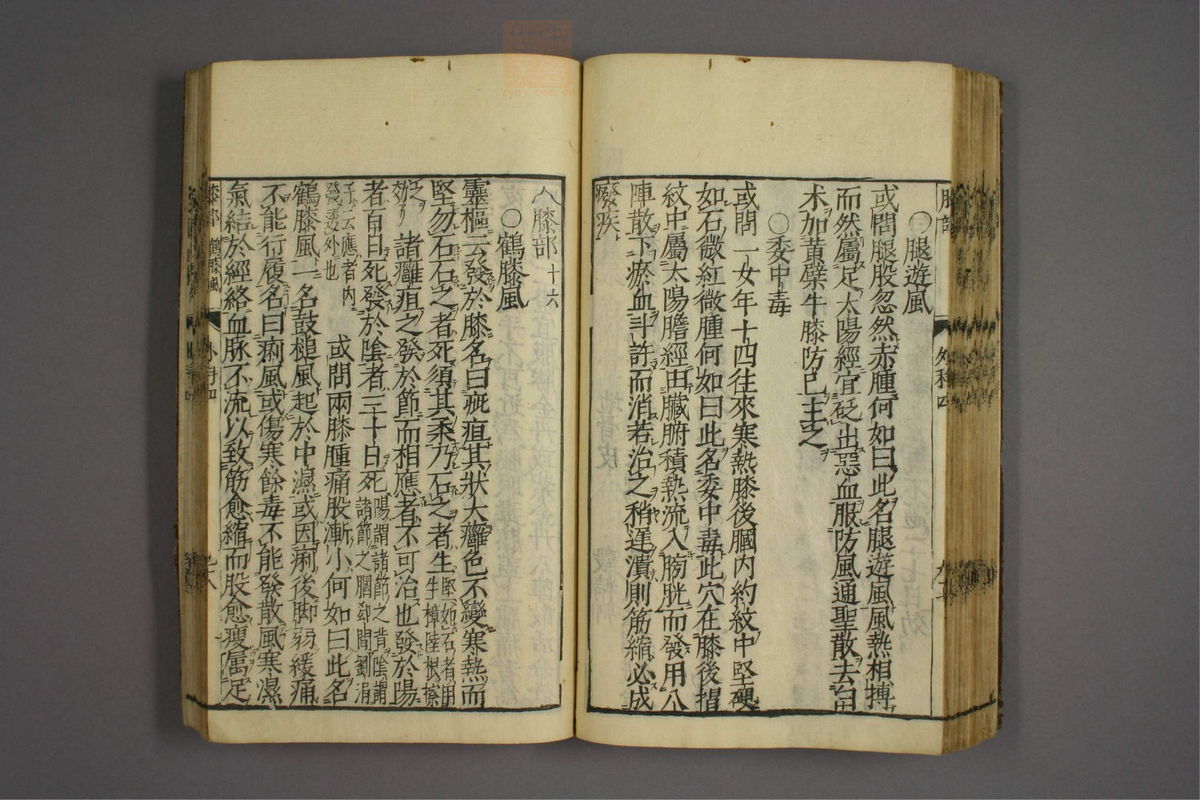 〇腿遊風
或問腿股忽然赤腫何如曰此名腿遊風風熱相搏
而然屬足太陽經宜砭出惡血服防風通聖散去白
术加黃蘗牛膝防己主之
〇委中毒
或問一女年十四往來寒熱膝後膕內約紋中堅硬
如石微紅微腫何如曰此名委中毒此穴在膝後掐
紋中屬太陽膽經由臟腑積熱流入膀胱而發用八
陣散下瘀血斗許而消若治之稍遲潰則筋縮必成
癈疾
膝部 十六
〇鶴膝風
靈樞云發於膝名曰疵疽其狀大癰色不變寒熱而
堅勿石石之者死須其柔乃石之者生 堅如石者用
牛樟陸根擦
之效 諸癰疽之發於節而相應者不可治也發於陽
者百日死發於陰者三十日死 陽謂諸節之背陰謂
諸節之膕郄間劉涓
子云應者內
發透外也
或問兩膝腫痛股漸小何如曰此名
鶴膝風一名鼓槌風起於中濕或因痢後脚弱緩痛
不能行履名曰痢風或傷寒餘毒不能發散風寒濕
氣結於經絡血脉不流以致筋愈縮而股愈瘦屬足
膝部 鶴膝風
外科四